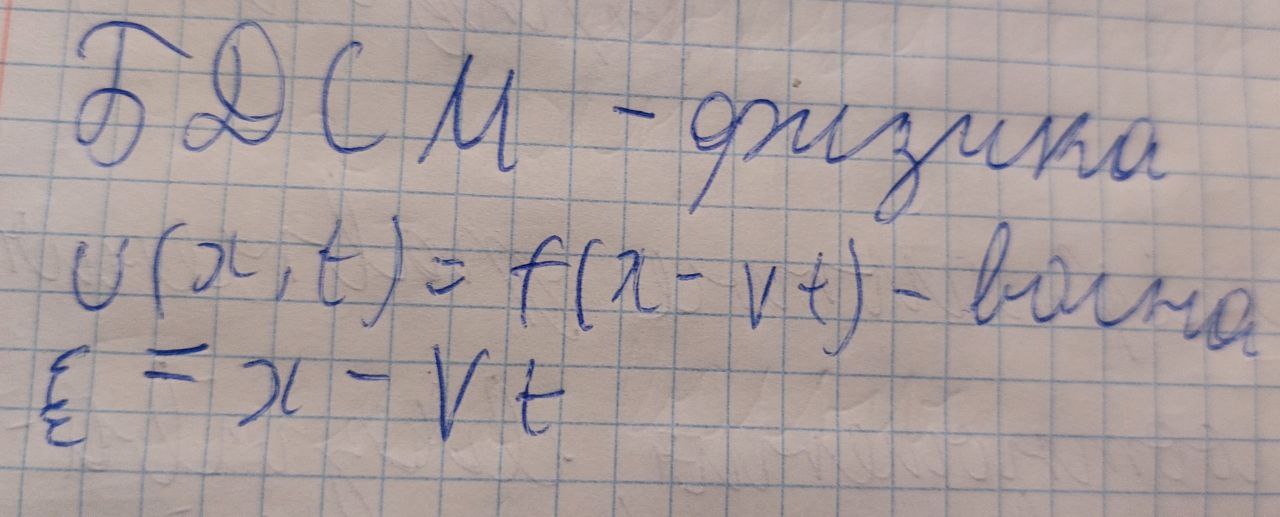 БДСМ - физика
u(x,t) = f(x - vt) - волна
ξ = x - Vt